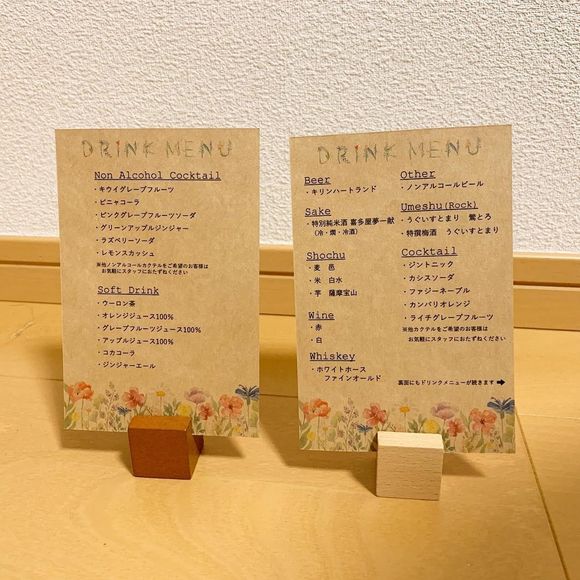 DRINK MENU
Non Alcohol Cocktail
・キウイグレープフルーツ
・ピニャコーラ
・ピンクグレープフルーツソーダ
・グリーンアップルジンジャー
・ラズベリーソーダ
・レモンスカッシュ
※他ノンアルコールカクテルをご希望のお客様は
お気軽にスタッフにおたずねください
Soft Drink
・ウーロン茶
・オレンジジュース100%
・グレープフルーツジュース100%
・アップルジュース100%
・コカコーラ
・ジンジャーエール
DRINK MENU
Beer
・キリンハートランド
Sake
・特別純米酒 喜多屋夢一献
(冷・燗・冷酒)
Shochu
・麦 邑
・米 白水
・芋 薩摩宝山
Wine
・赤
・白
Whiskey
・ホワイトホース
ファインオールド
Other
・ノンアルコールビール
Umeshu(Rock)
・うぐいすとまり 鶯とろ
・特撰梅酒 うぐいすとまり
Cocktail
・ジントニック
・カシスソーダ
・ファジーネーブル
・カンパリオレンジ
・ライチグレープフルーツ
※他カクテルをご希望のお客様は
お気軽にスタッフにおたずねください
裏面にもドリンクメニューが続きます ➡